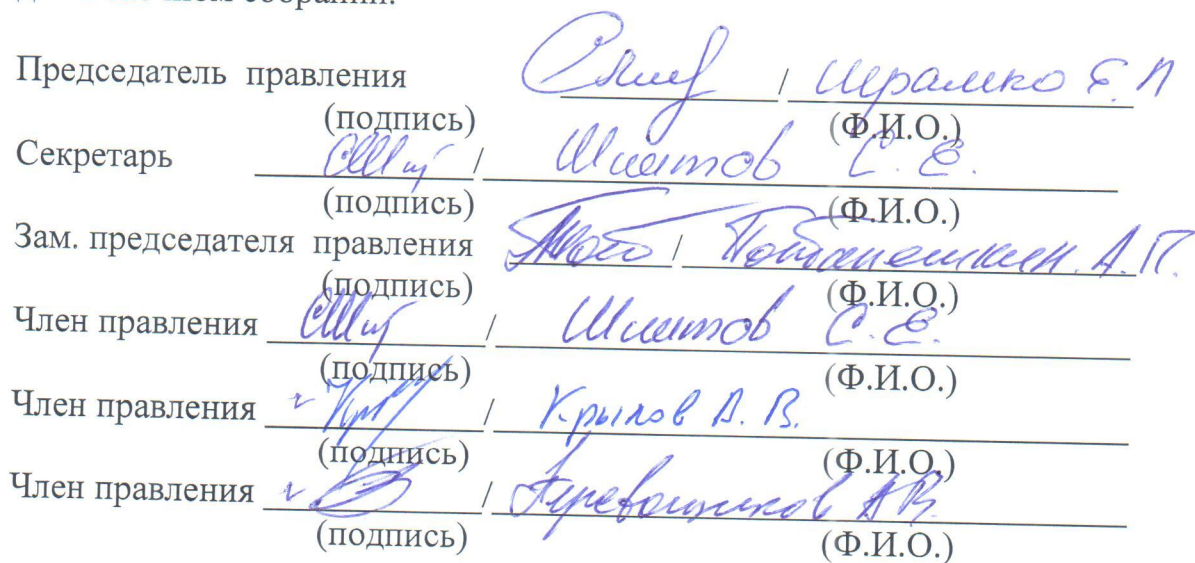 собрании.
Председатель правления / Шрамко Е. П
(подпись) (Ф.И.О.)
Секретарь / С. Е.
(подпись) (Ф.И.О.)
Зам. председателя правления / А.П.
(подпись) (Ф.И.О.)
Член правления / С. Е.
(подпись) (Ф.И.О.)
Член правления / Крылов А. В.
(подпись) (Ф.И.О.)
Член правления / Перевощиков АВ.
(подпись) (Ф.И.О.)